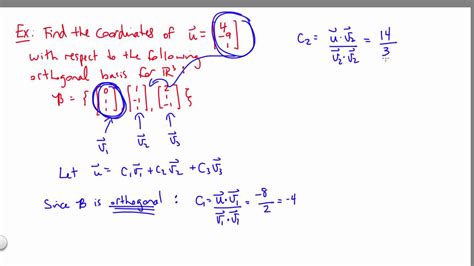 Ex: Find the coordinates of u⃗ = [4
-9
1]
with respect to the following
orthogonal basis for ℝ³:
B = { [0
1
1], [1
-1
1], [2
1
-1] }
v⃗₁ v⃗₂ v⃗₃
Let u⃗ = c₁v⃗₁ + c₂v⃗₂ + c₃v⃗₃
Since B is orthogonal : c₁ = u⃗·v⃗₁ / v⃗₁·v⃗₁ = -8/2 = -4
c₂ = u⃗·v⃗₂ / v⃗₂·v⃗₂ = 14/3